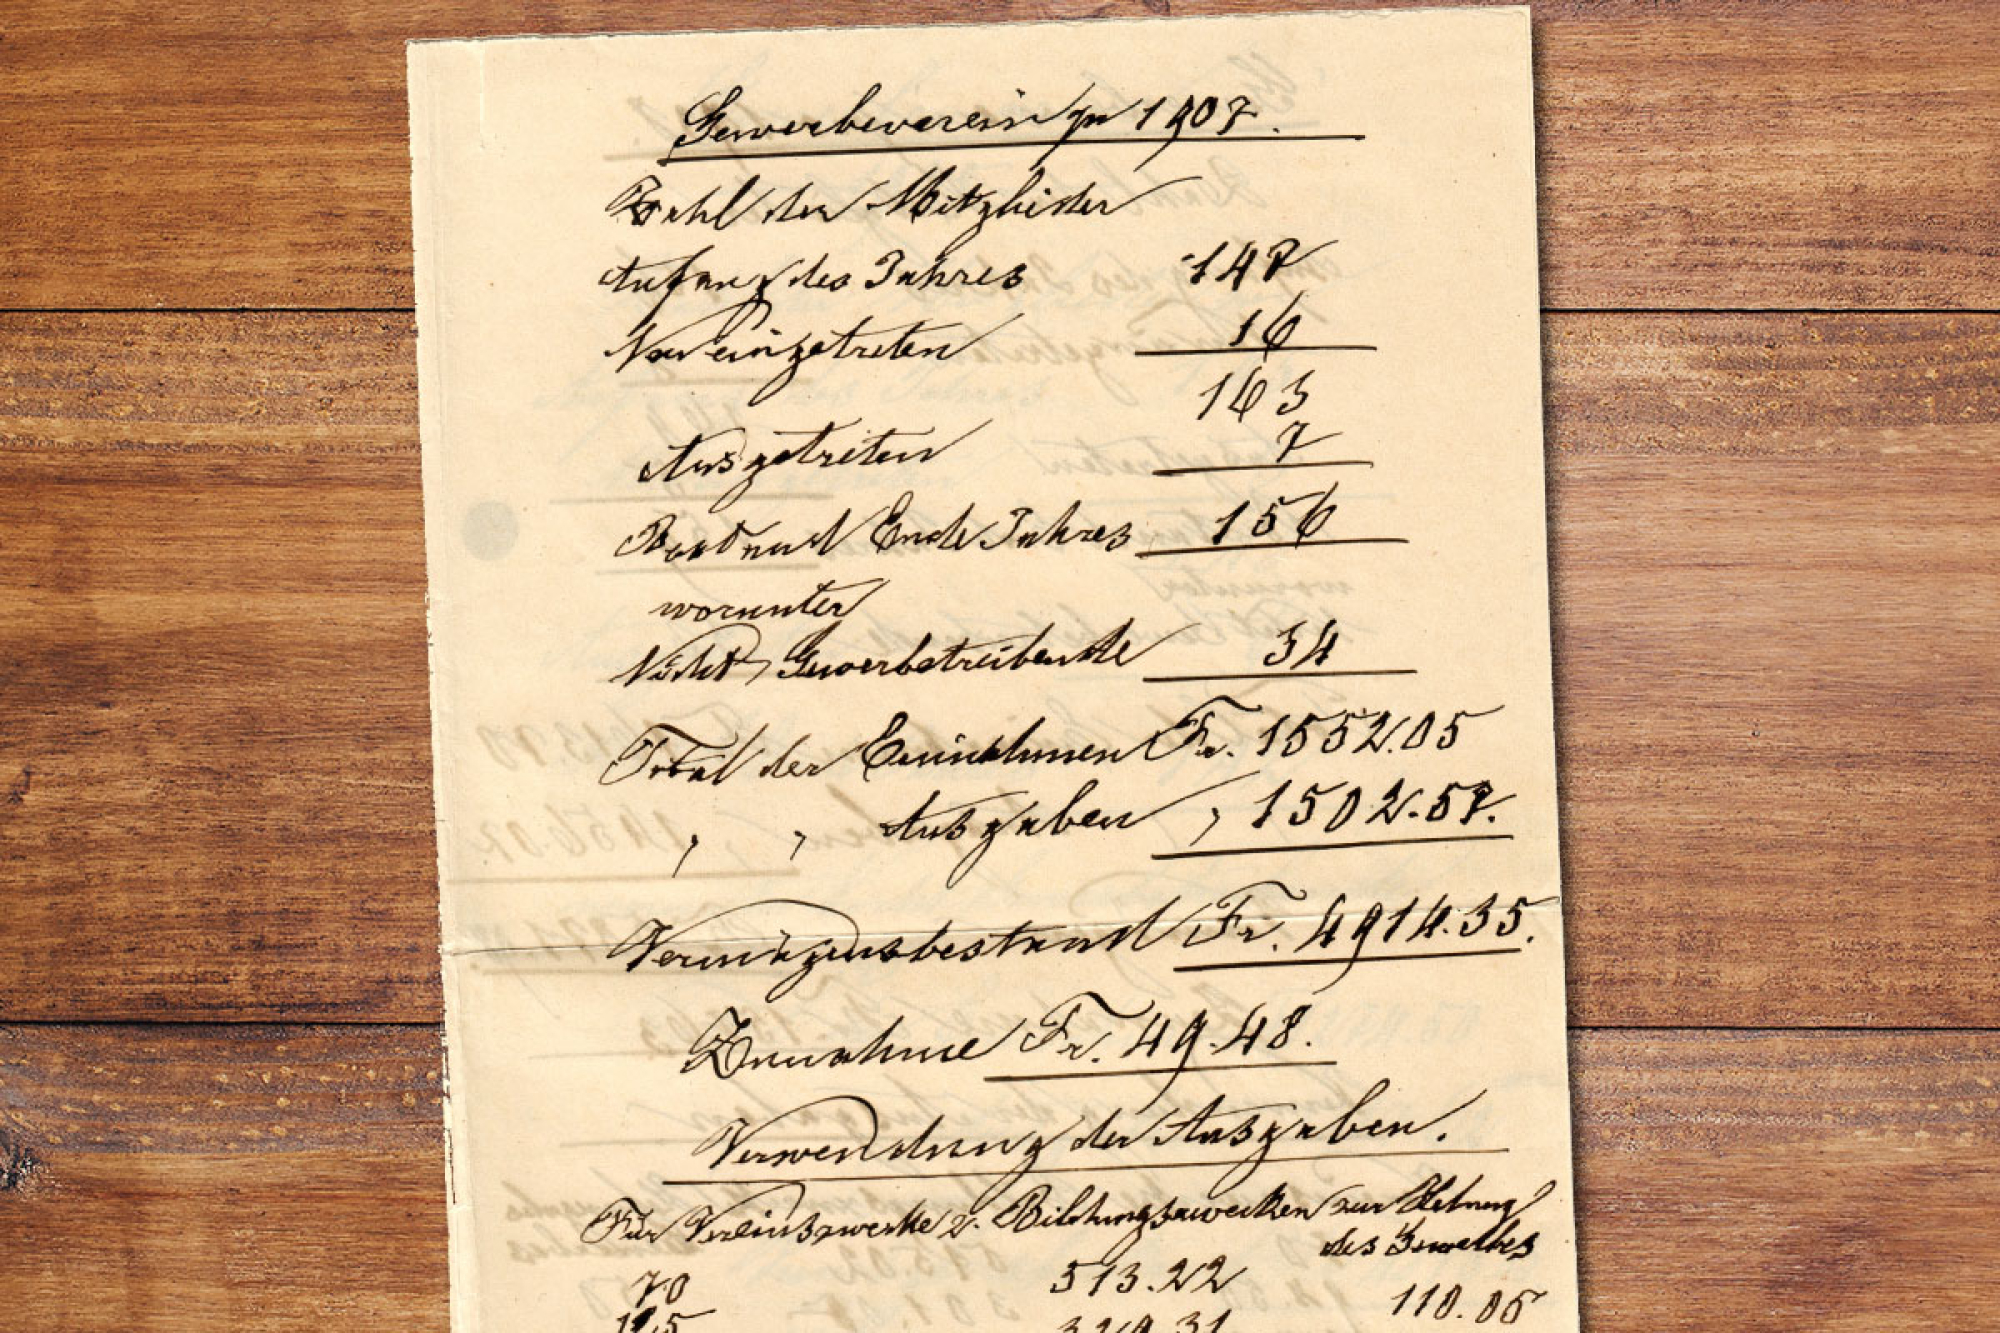 Gewerbeverein pr 1907.
Zahl der Mitglieder
Anfang des Jahres 147
Neu eingetreten 16
163
Ausgetreten 7
Bestand Ende Jahres 156
worunter
Nicht Gewerbetreibende 34
Total der Einnahmen Fr. 1552.05
" " Ausgaben " 1502.57.
Vermögensbestand Fr. 4914.35.
Zunahme Fr. 49.48.
Verwendung der Ausgaben.
Für Vereinszwecke z. Bildungszwecken zur Hebung
des Gewerbes
70 513.22 110.05